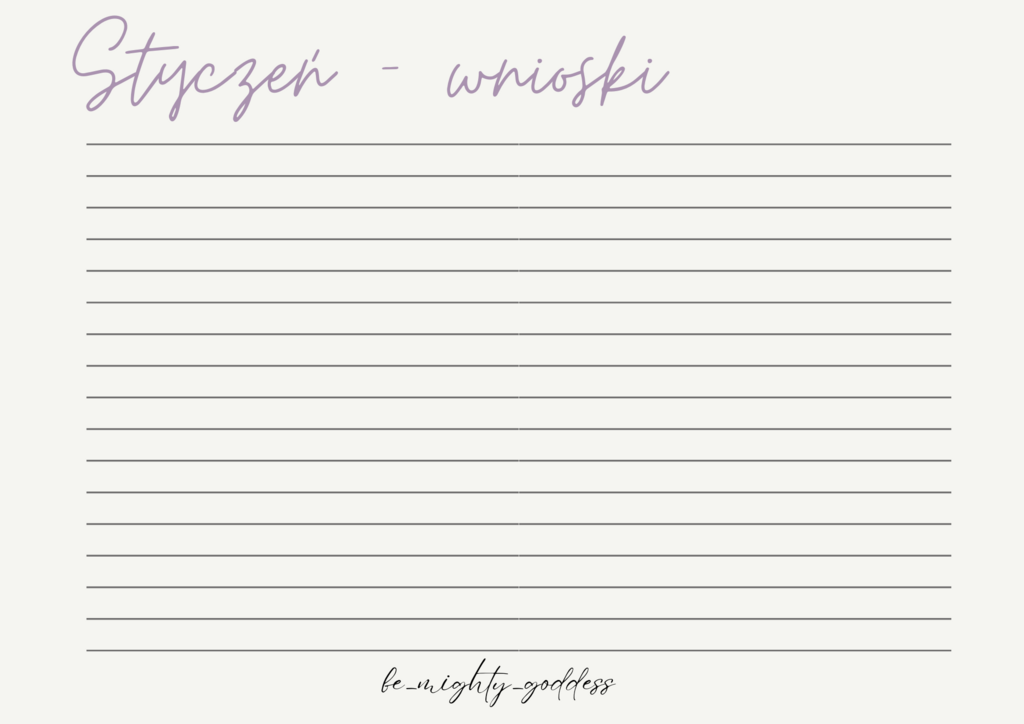 Styczeń - wnioski
be_mighty_goddess